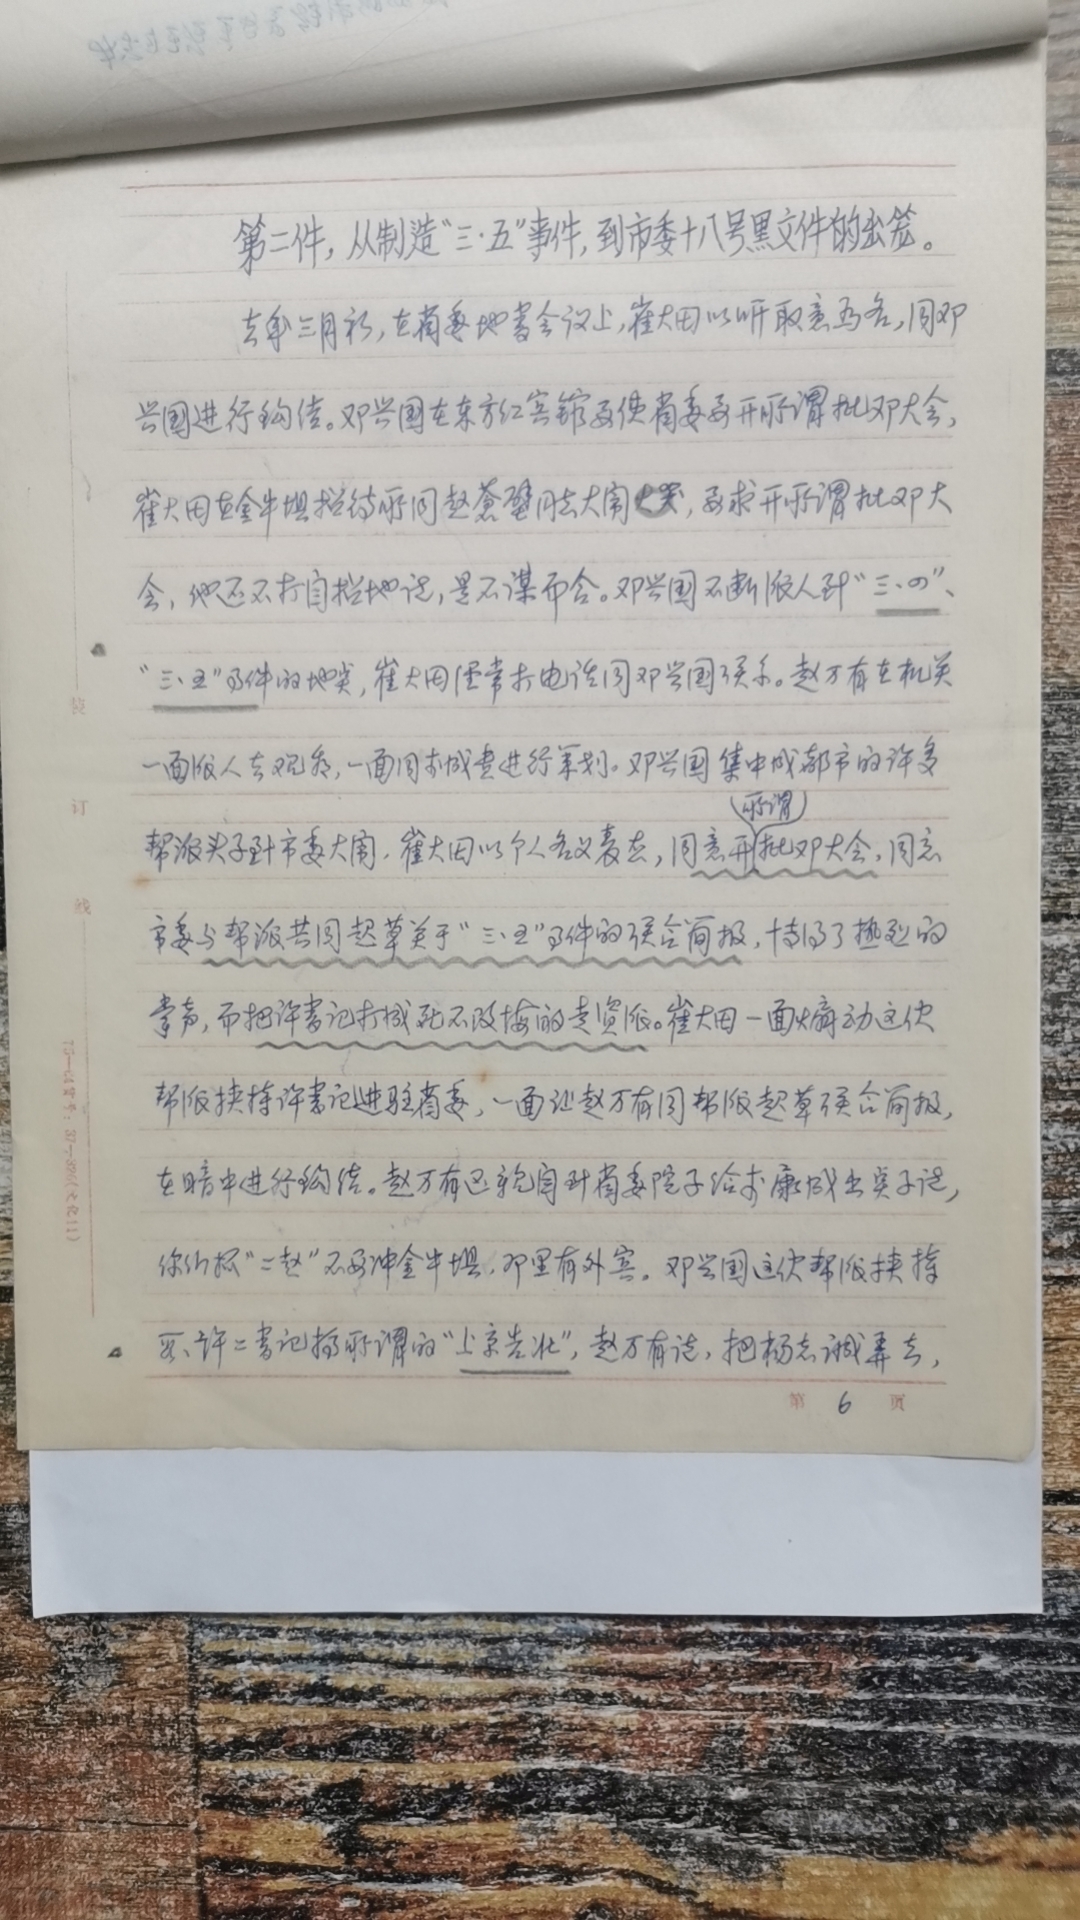 第二件，从制造“三·五”事件，到市委十八号黑文件的出笼。
去年三月初，在省委地书会议上，崔大田以听取意见为名，同邓
兴国进行钩结。邓兴国在东方红宾馆要使省委召开所谓批邓大会，
崔大田在金牛坝招待所同赵苍璧同志大闹，要求开所谓批邓大
会，他还不打自招地说，是不谋而合。邓兴国不断派人到“三·四”、
“三·五”事件的地点，崔大田经常打电话同邓兴国联系。赵万有在机关
一面派人去观看，一面同李成贵进行策划。邓兴国集中成都市的许多
所谓
帮派头子到市委大闹，崔大田以个人名义表态，同意开批邓大会，同意
市委与帮派共同起草关于“三·五”事件的联合简报，博得了热烈的
掌声，而把许书记打成死不改悔的走资派。崔大田一面煽动这伙
帮派挟持许书记进驻省委，一面让赵万有同帮派起草联合简报，
在暗中进行钩结。赵万有还亲自到省委院子给李康成出点子说，
你们抓“二赵”不要冲金牛坝，那里有外宾。邓兴国这伙帮派挟持
许二书记搞所谓的“上京告状”，赵万有说，把杨志诚弄去，
第 6 页
装 订 线